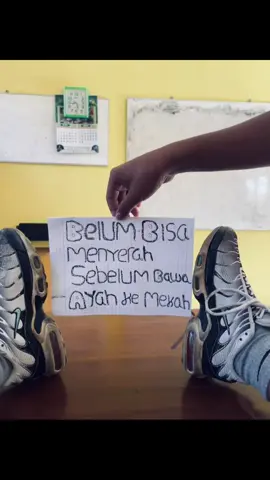 Belum Bisa
Menyerah
Sebelum Bawa
Ayah ke Mekah